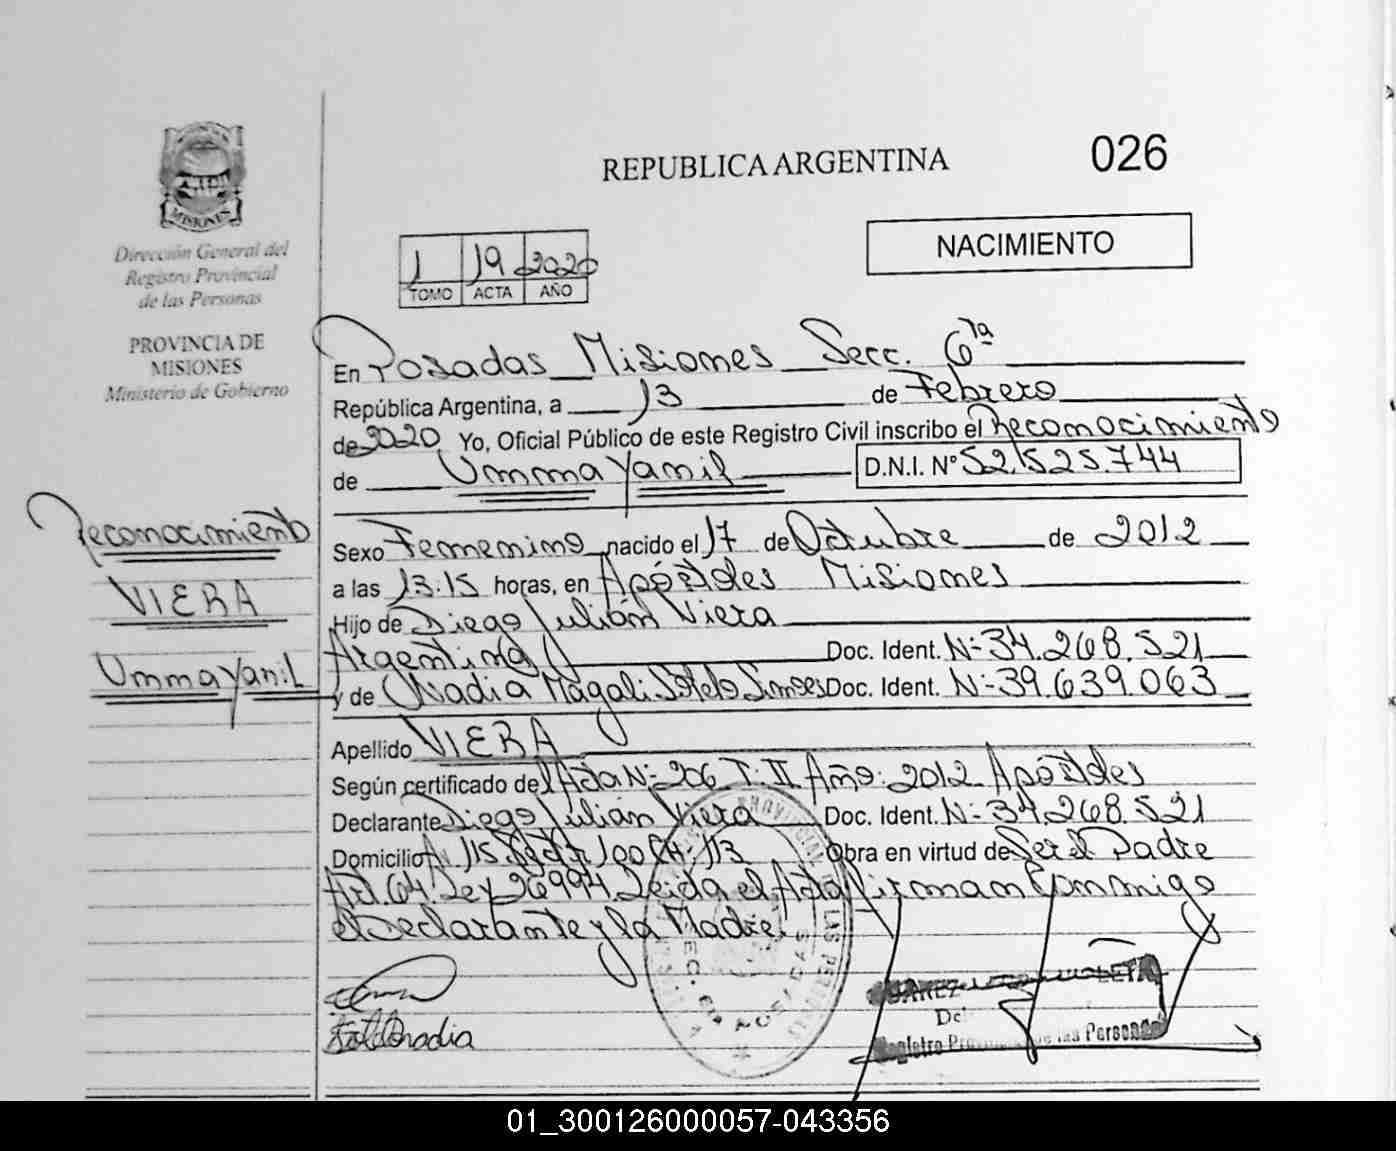 REPUBLICA ARGENTINA
026
NACIMIENTO
MISIONES
Dirección General del
Registro Provincial
de las Personas
PROVINCIA DE
MISIONES
Ministerio de Gobierno
1 19 2020
TOMO ACTA AÑO
En Posadas Misiones Secc. 6ta
República Argentina, a 13 de Febrero
de 2020 Yo, Oficial Público de este Registro Civil inscribo el Reconocimiento
de Umma Yamil D.N.I. N° 52.525.744
Reconocimiento
VIERA
Umma Yanil
Sexo Femenino nacido el 17 de Octubre de 2012
a las 13:15 horas, en Apóstoles Misiones
Hijo de Diego Julián Viera
Argentina Doc. Ident. N- 34.268.521
y de Nadia Magali Sotelo Simoes Doc. Ident. N- 39.639.063
Apellido VIERA
Según certificado del Acta N- 206 T: II Año: 2012 Apóstoles
Declarante Diego Julián Viera Doc. Ident. N- 34.268.521
Domicilio 115 100 113 Obra en virtud de Ser el Padre
Art. 64 Ley 26994. Leida el Acta firman Conmigo
el Declarante y la Madre.
Nadia
Registro Provincial de las Personas
01_300126000057-043356